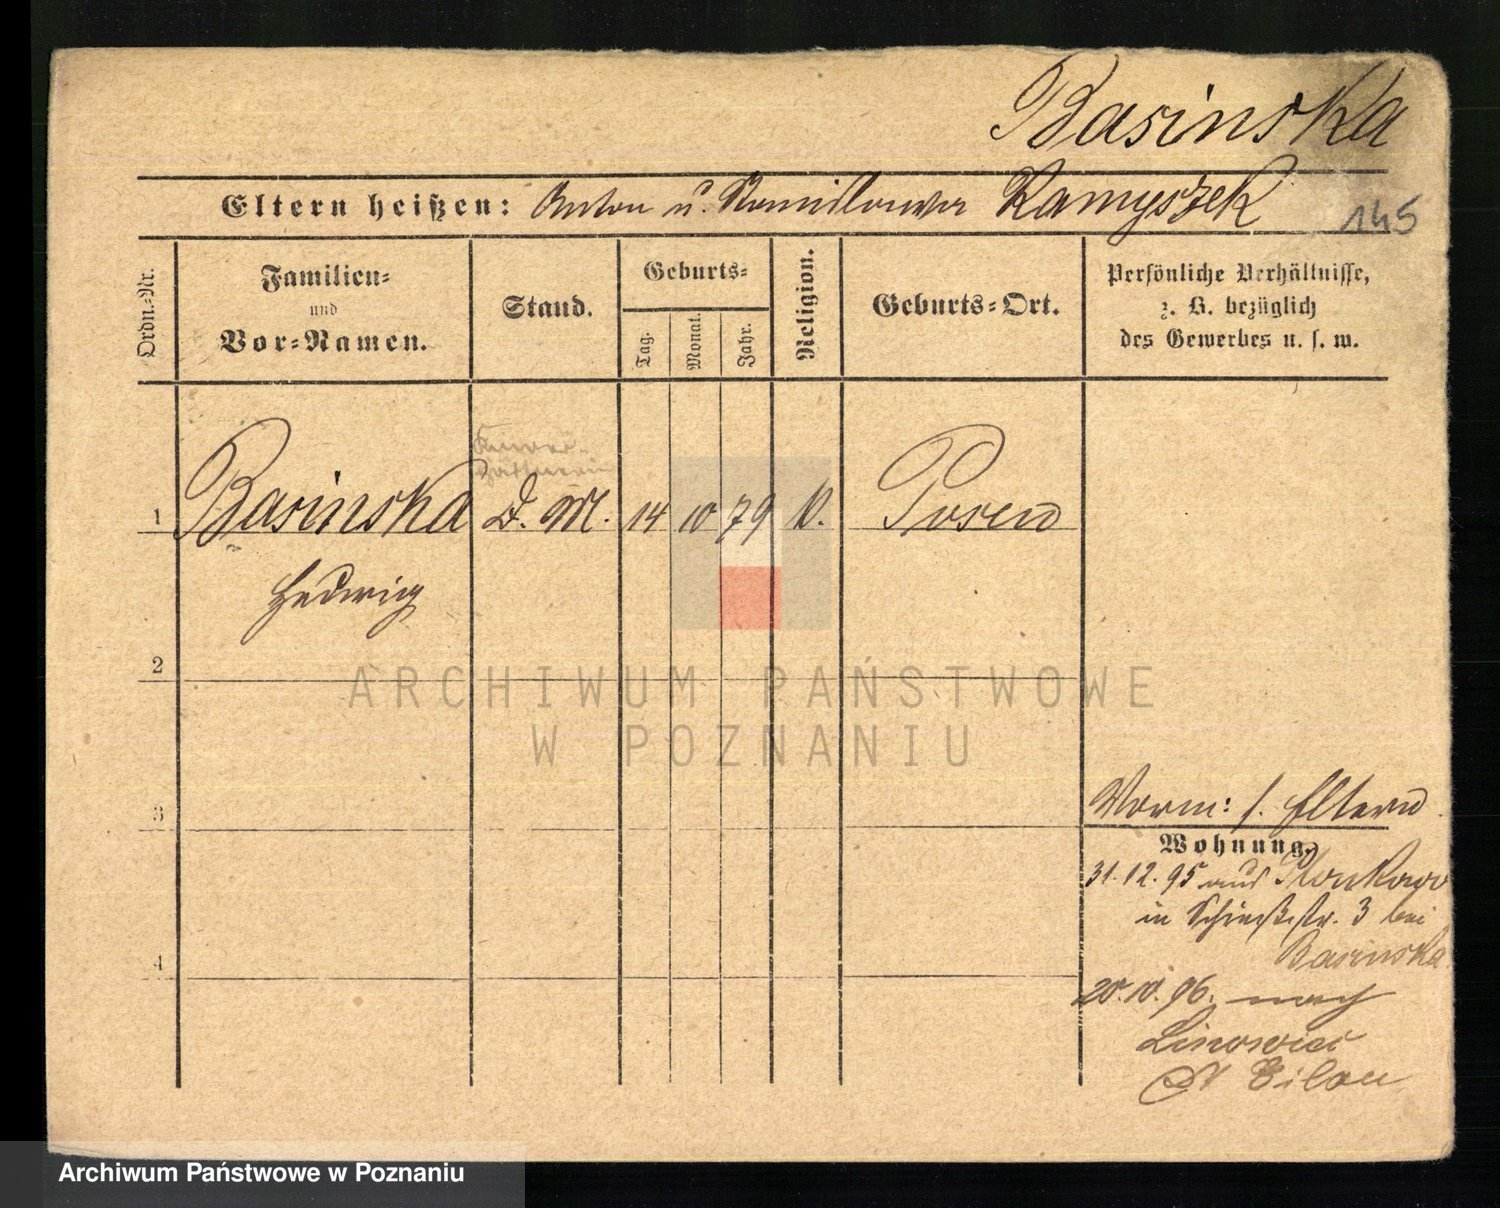 Basinska
Eltern heißen: Anton u. Stanislawa Kamyszek
145
Ordn.-Nr.
Familien-
und
Vor-Namen.
Stand.
Geburts-
Tag.
Monat.
Jahr.
Religion.
Geburts-Ort.
Persönliche Verhältnisse,
z. B. bezüglich
des Gewerbes u. s. w.
1 Basinska D. M. 14 10 79 K. Posen
Hedwig
2
3
4
Vorm: s. Eltern
Wohnung.
31.12.95 aus
in Schießstr. 3 bei
Basinska
20.10.96. nach
Linowiec
Eilau
ARCHIWUM PAŃSTWOWE
W POZNANIU
Archiwum Państwowe w Poznaniu